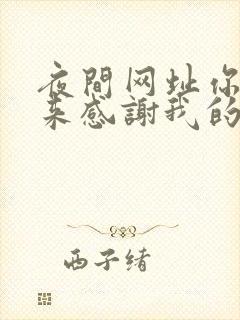 夜間网址你
来感謝我的
西子绪